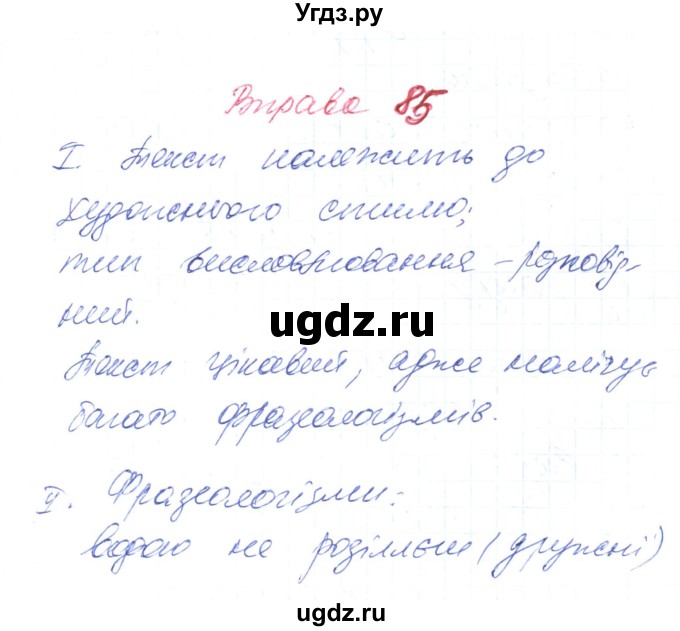 Угдз.ру
Вправа 85
I. Текст належить до
художнього стилю;
тип висловлювання – розповід-
ний.
ugdz.ru
Текст цікавий, адже налічує
багато фразеологізмів.
II. Фразеологізми:
водою не розіллєш (дружні)
ugdz.ru